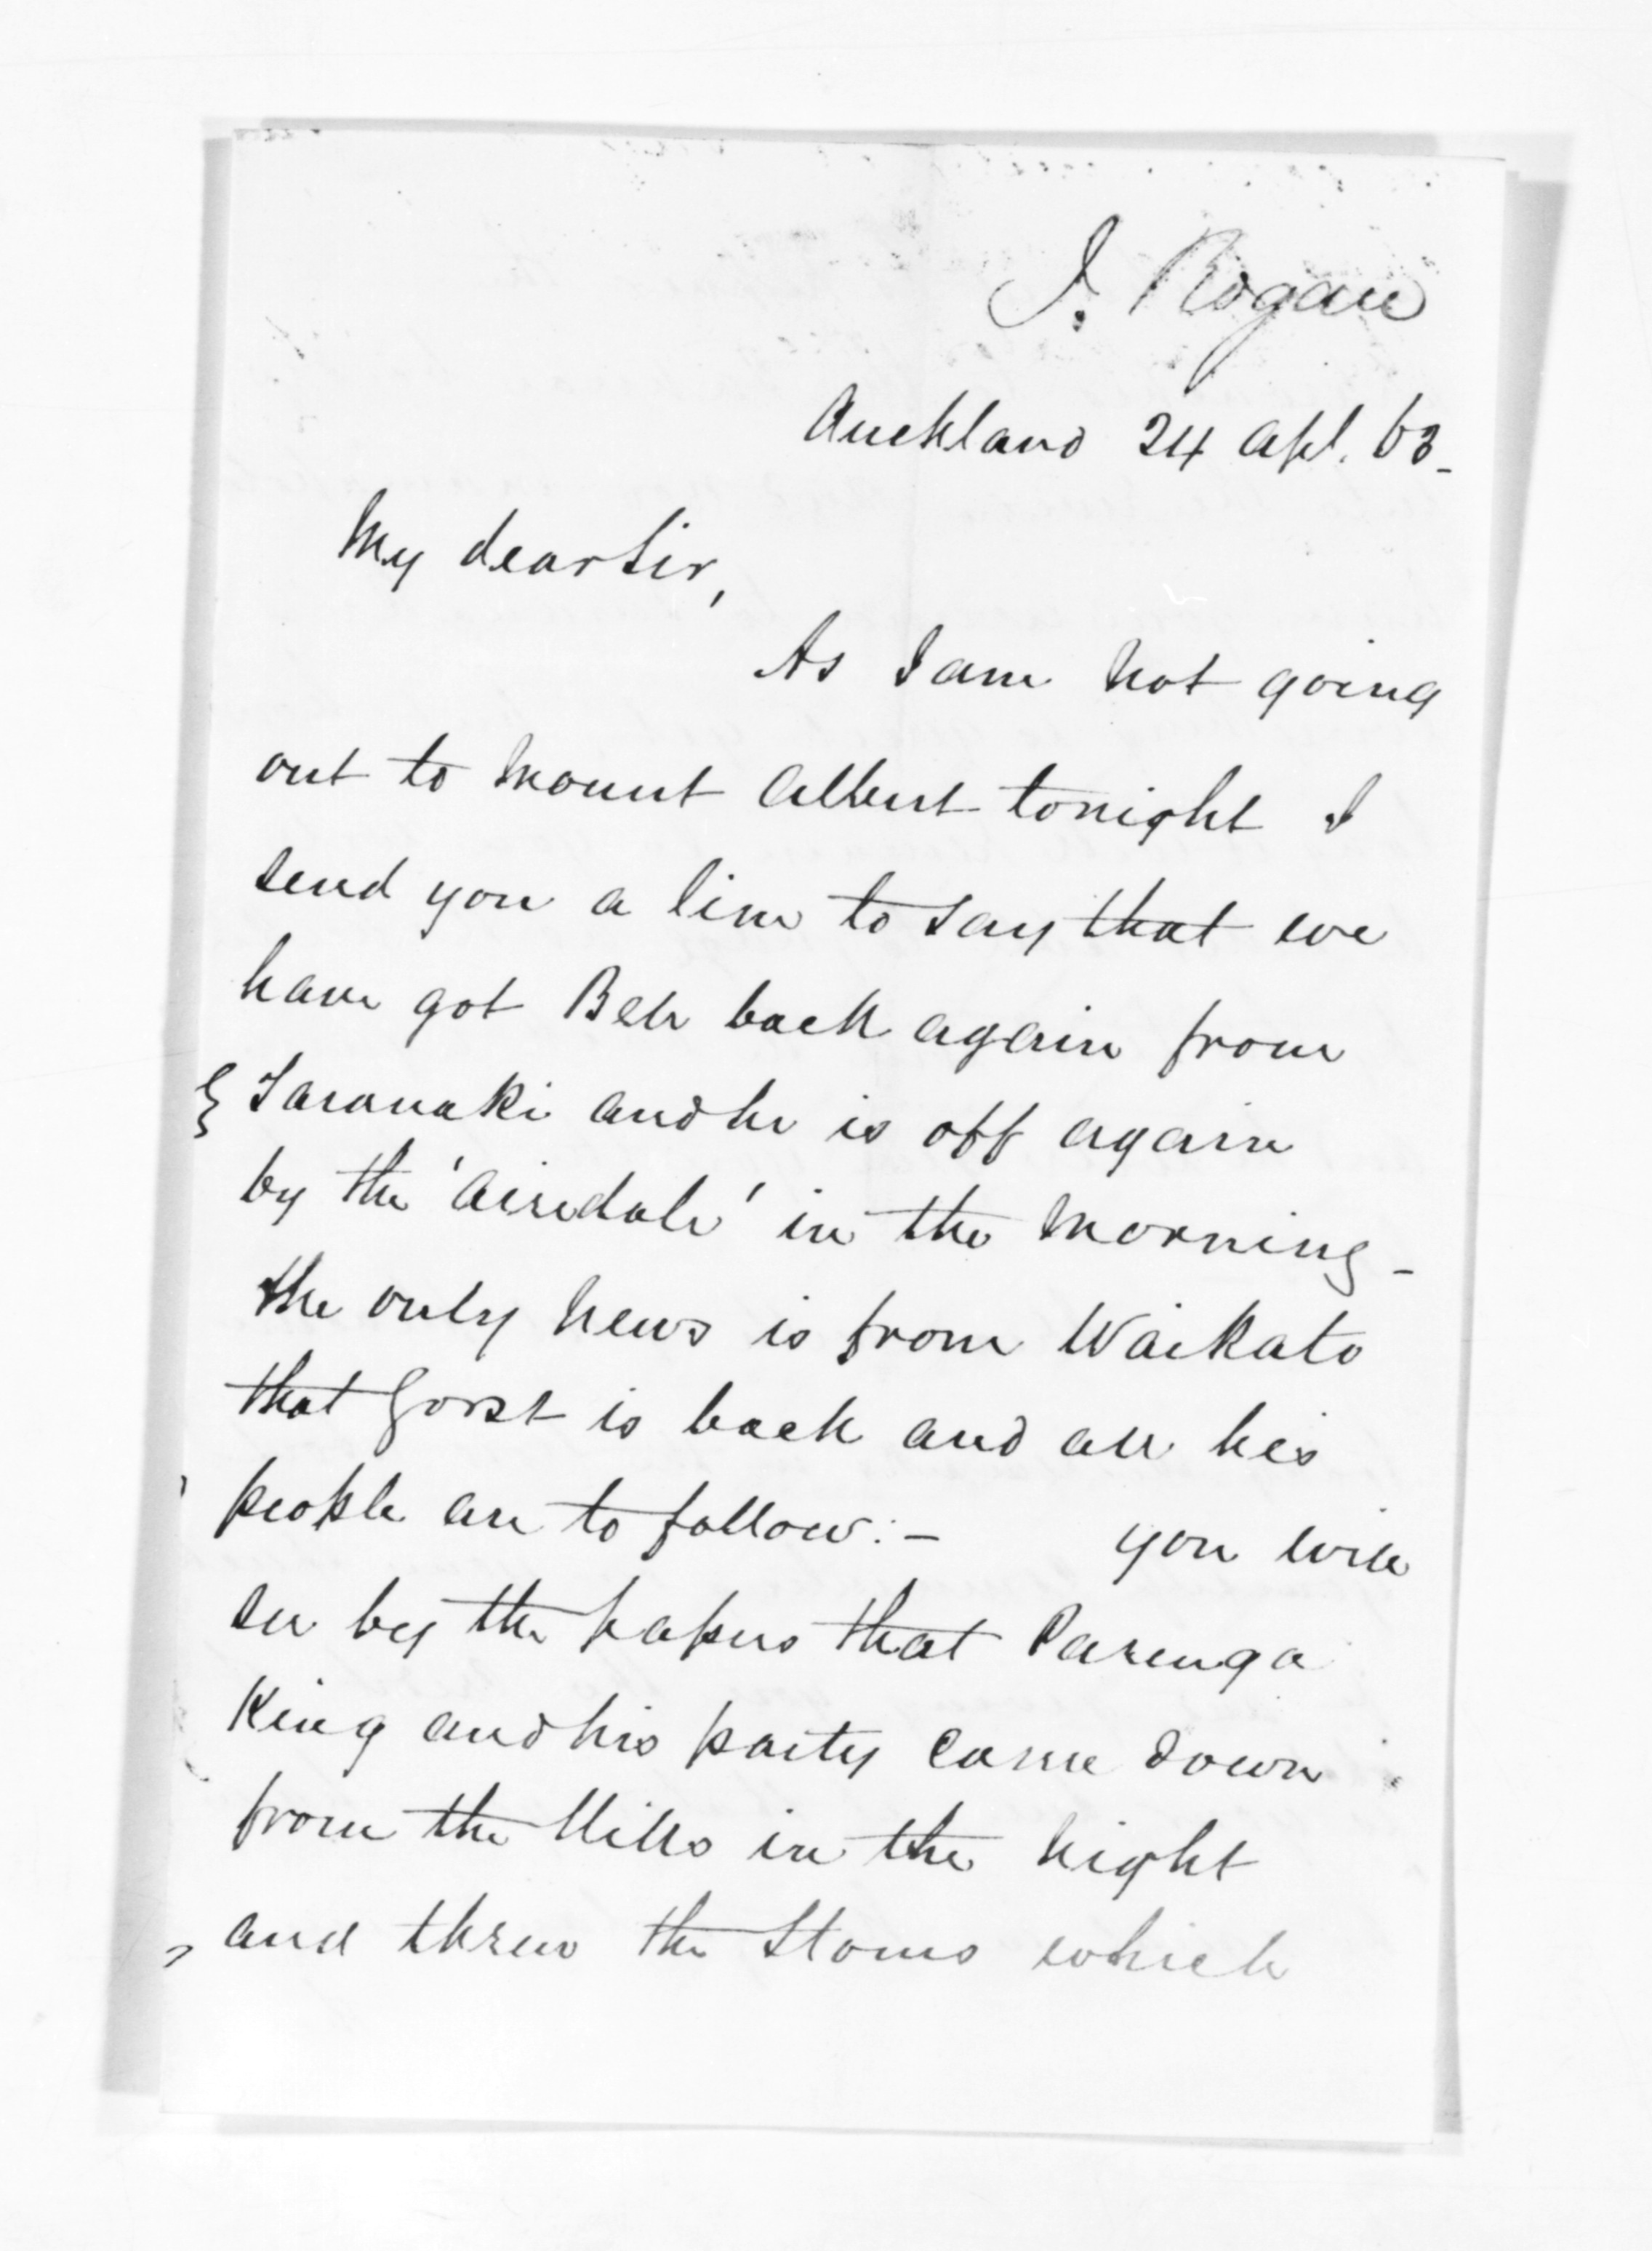 J. Rogan
Auckland 24 Apl. 63_
My dear Sir,
As I am not going
out to Mount Albert tonight I
send you a line to say that we
have got Bell back again from
Taranaki and he is off again
by the 'Airedale' in the morning_
the only news is from Waikato
that Gorst is back and all his
people are to follow:- you will
see by the papers that Parenga
King and his party came down
from the Hills in the night
and threw the Stones which